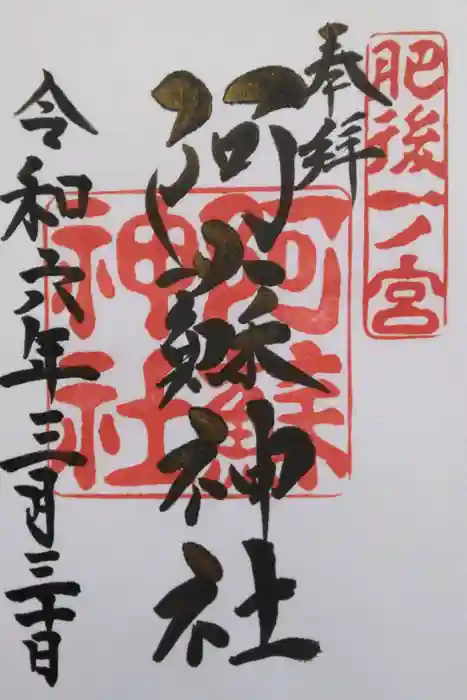 奉拝
肥後一ノ宮
阿蘇神社
阿蘇神社
令和六年三月三十日